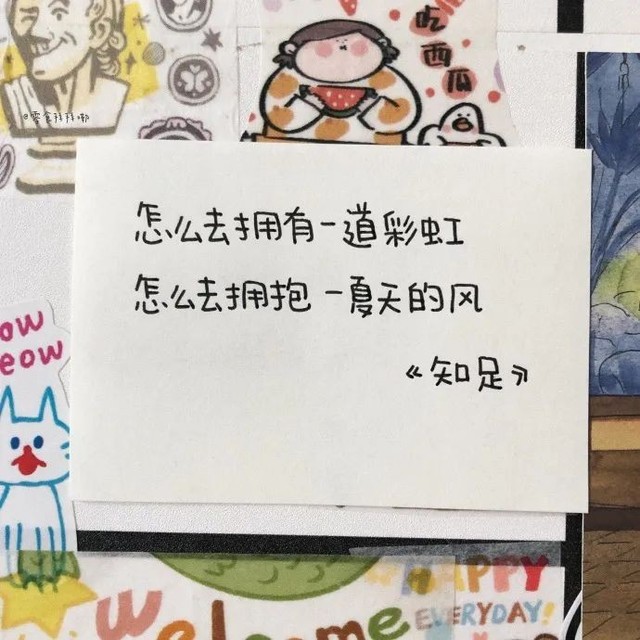 吃西瓜
怎么去拥有一道彩虹
怎么去拥抱一夏天的风
《知足》
ow
eow
HAPPY
EVERYDAY!
Welcome